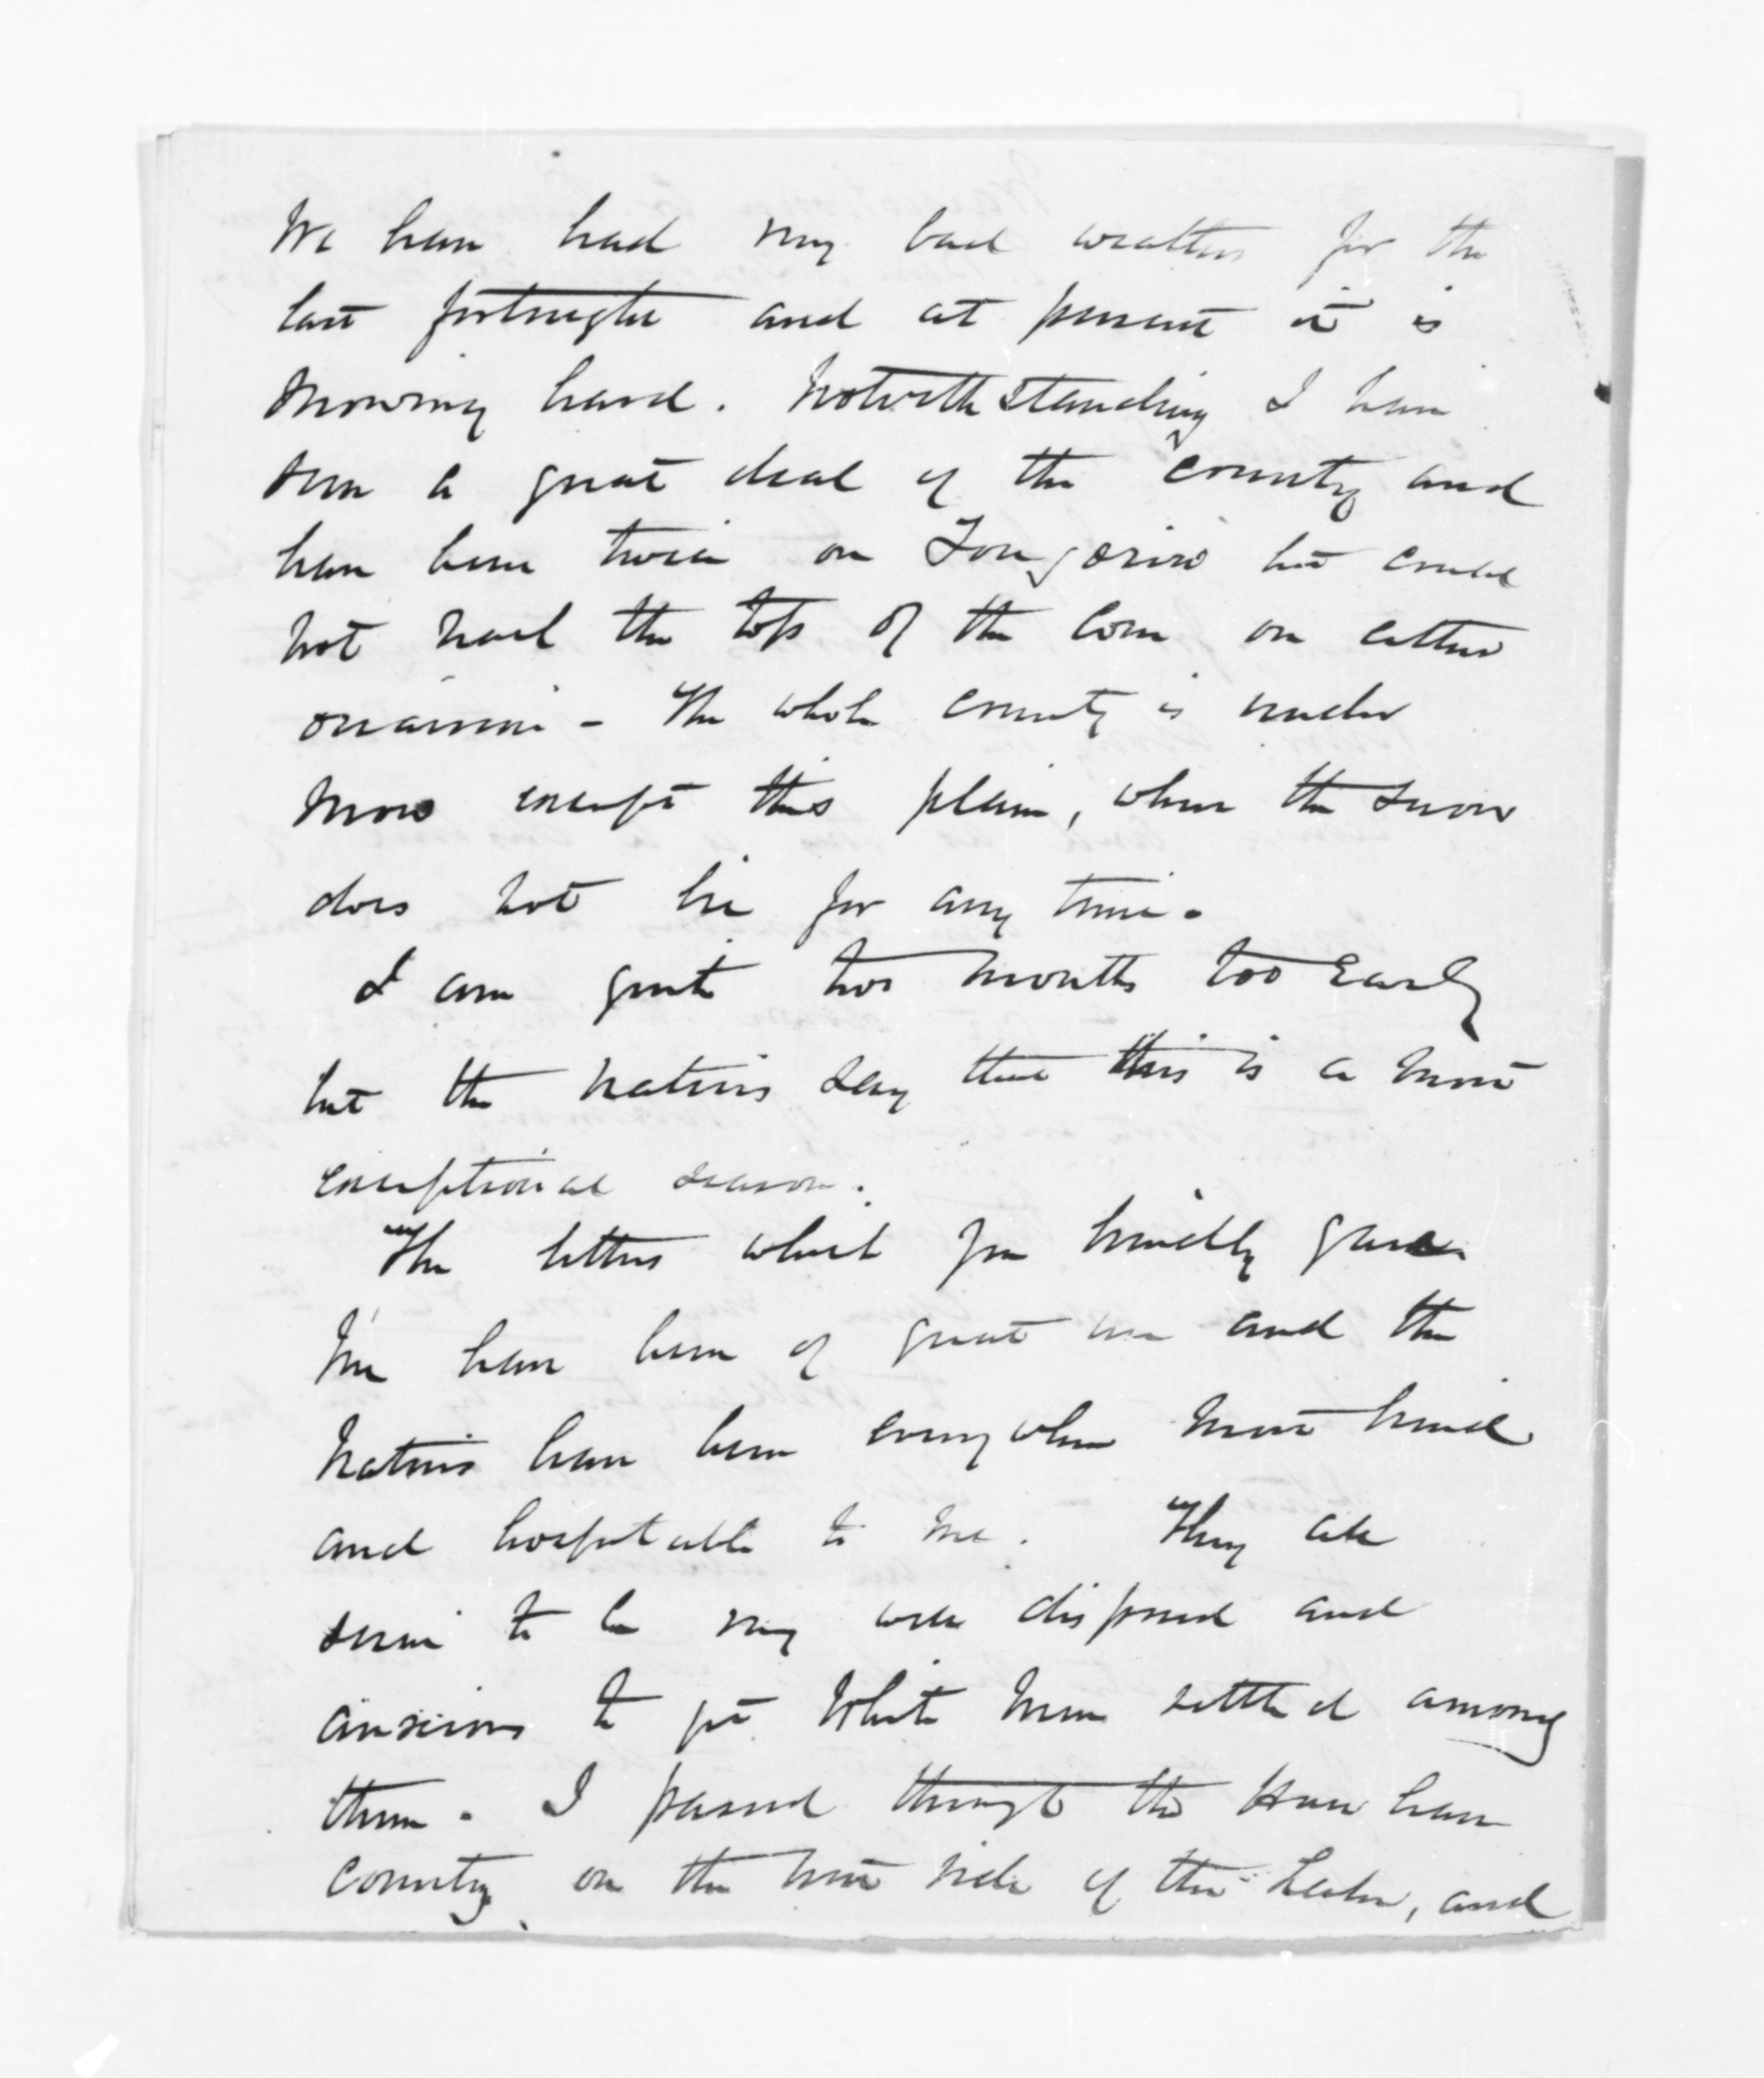 We have had very bad weather for the
last fortnight and at present it is
snowing hard. Notwithstanding I have
seen a great deal of the country and
have been twice on Tongariro but could
not reach the top of the Cone on either
occasion – The whole country is under
snow except this plain, where the snow
does not lie for any time.
I am quite two months too early
but the natives say that this is a most
exceptional season.
The letters which you kindly gave
me have been of great use and the
natives have been everywhere most kind
and hospitable to me. They all
seem to be very well disposed and
anxious to get White men settled among
them. I passed through the Hau hau
country on the west side of the Lake, and